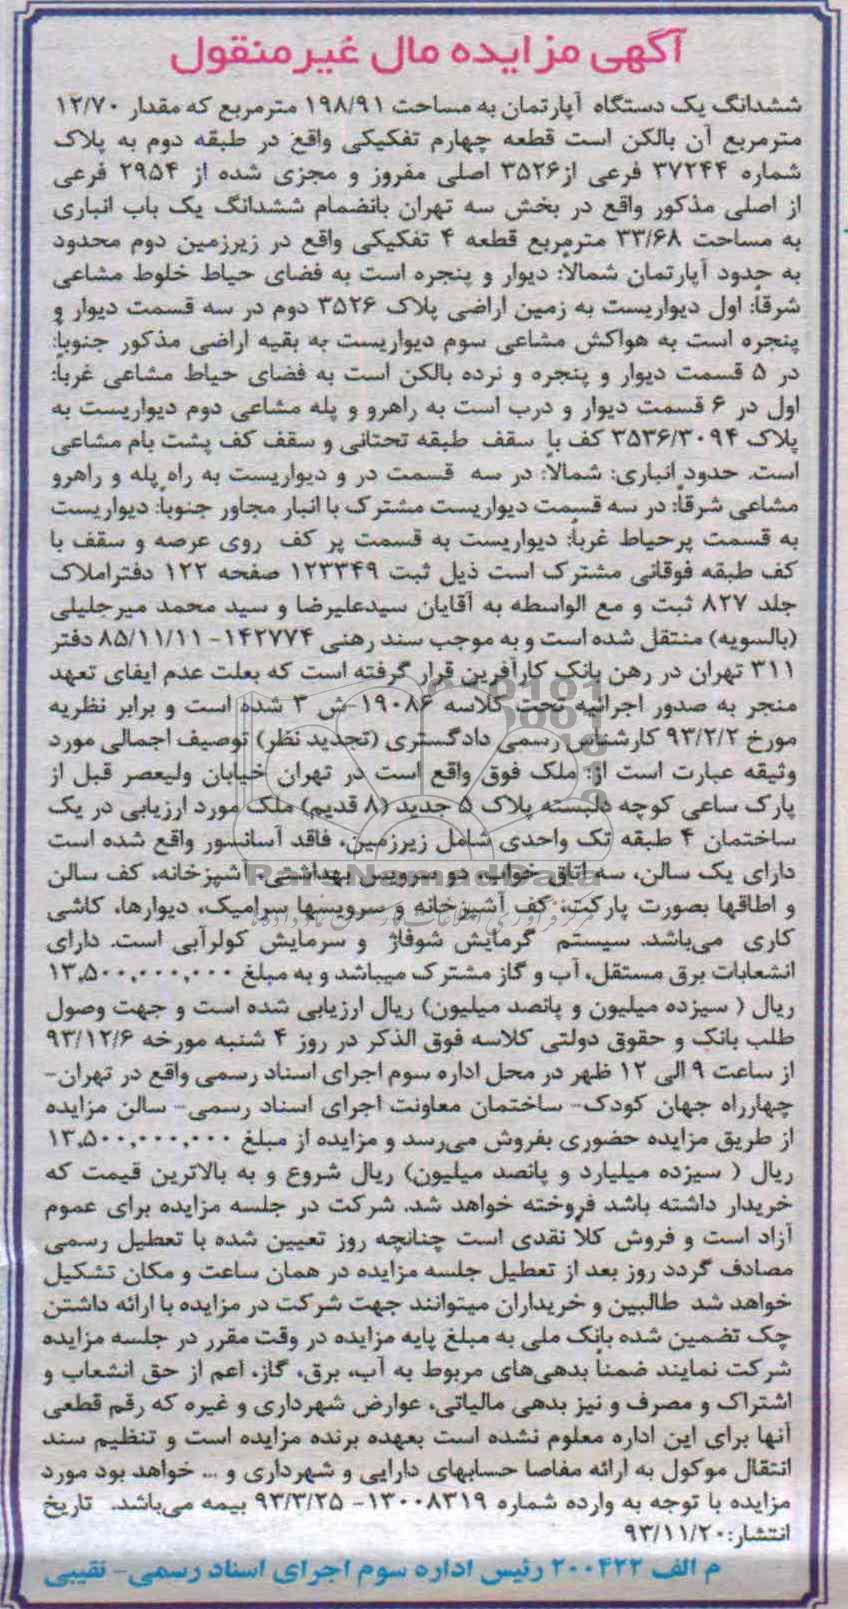 آگهی مزایده مال غیرمنقول
ششدانگ یک دستگاه آپارتمان به مساحت ۱۹۸/۹۱ مترمربع که مقدار ۱۲/۷۰
مترمربع آن بالکن است قطعه چهارم تفکیکی واقع در طبقه دوم به پلاک
شماره ۳۷۲۴۴ فرعی از۳۵۲۶ اصلی مفروز و مجزی شده از ۲۹۵۴ فرعی
از اصلی مذکور واقع در بخش سه تهران بانضمام ششدانگ یک باب انباری
به مساحت ۳۳/۶۸ مترمربع قطعه ۴ تفکیکی واقع در زیرزمین دوم محدود
به حدود آپارتمان شمالاً: دیوار و پنجره است به فضای حیاط خلوط مشاعی
شرقاً: اول دیواریست به زمین اراضی پلاک ۳۵۲۶ دوم در سه قسمت دیوار و
پنجره است به هواکش مشاعی سوم دیواریست به بقیه اراضی مذکور جنوباً:
در ۵ قسمت دیوار و پنجره و نرده بالکن است به فضای حیاط مشاعی غرباً:
اول در ۶ قسمت دیوار و درب است به راهرو و پله مشاعی دوم دیواریست به
پلاک ۳۵۳۶/۳۰۹۴ کف با سقف طبقه تحتانی و سقف کف پشت بام مشاعی
است. حدود انباری: شمالاً: در سه قسمت در و دیواریست به راه پله و راهرو
مشاعی شرقاً: در سه قسمت دیواریست مشترک با انبار مجاور جنوباً: دیواریست
به قسمت پرحیاط غرباً: دیواریست به قسمت پر کف روی عرصه و سقف با
کف طبقه فوقانی مشترک است ذیل ثبت ۱۲۳۳۴۹ صفحه ۱۲۲ دفتراملاک
جلد ۸۲۷ ثبت و مع الواسطه به آقایان سیدعلیرضا و سید محمد میرجلیلی
(بالسویه) منتقل شده است و به موجب سند رهنی ۱۴۲۷۷۴- ۸۵/۱۱/۱۱ دفتر
۳۱۱ تهران در رهن بانک کارآفرین قرار گرفته است که بعلت عدم ایفای تعهد
منجر به صدور اجرائیه تحت کلاسه ۱۹۰۸۶-ش ۳ شده است و برابر نظریه
مورخ ۹۳/۲/۲ کارشناس رسمی دادگستری (تجدید نظر) توصیف اجمالی مورد
وثیقه عبارت است از: ملک فوق واقع است در تهران خیابان ولیعصر قبل از
پارک ساعی کوچه دلبسته پلاک ۵ جدید (۸ قدیم) ملک مورد ارزیابی در یک
ساختمان ۴ طبقه تک واحدی شامل زیرزمین، فاقد آسانسور واقع شده است
دارای یک سالن، سه اتاق خواب، دو سرویس بهداشتی، آشپزخانه، کف سالن
و اطاقها بصورت پارکت، کف آشپزخانه و سرویسها سرامیک، دیوارها، کاشی
کاری می‌باشد. سیستم گرمایش شوفاژ و سرمایش کولرآبی است. دارای
انشعابات برق مستقل، آب و گاز مشترک میباشد و به مبلغ ۱۳,۵۰۰,۰۰۰,۰۰۰
ریال ( سیزده میلیون و پانصد میلیون) ریال ارزیابی شده است و جهت وصول
طلب بانک و حقوق دولتی کلاسه فوق الذکر در روز ۴ شنبه مورخه ۹۳/۱۲/۶
از ساعت ۹ الی ۱۲ ظهر در محل اداره سوم اجرای اسناد رسمی واقع در تهران-
چهارراه جهان کودک- ساختمان معاونت اجرای اسناد رسمی- سالن مزایده
از طریق مزایده حضوری بفروش می‌رسد و مزایده از مبلغ ۱۳,۵۰۰,۰۰۰,۰۰۰
ریال ( سیزده میلیارد و پانصد میلیون) ریال شروع و به بالاترین قیمت که
خریدار داشته باشد فروخته خواهد شد. شرکت در جلسه مزایده برای عموم
آزاد است و فروش کلاً نقدی است چنانچه روز تعیین شده با تعطیل رسمی
مصادف گردد روز بعد از تعطیل جلسه مزایده در همان ساعت و مکان تشکیل
خواهد شد طالبین و خریداران میتوانند جهت شرکت در مزایده با ارائه داشتن
چک تضمین شده بانک ملی به مبلغ پایه مزایده در وقت مقرر در جلسه مزایده
شرکت نمایند ضمناً بدهی‌های مربوط به آب، برق، گاز، اعم از حق انشعاب و
اشتراک و مصرف و نیز بدهی مالیاتی، عوارض شهرداری و غیره که رقم قطعی
آنها برای این اداره معلوم نشده است بعهده برنده مزایده است و تنظیم سند
انتقال موکول به ارائه مفاصا حسابهای دارایی و شهرداری و ... خواهد بود مورد
مزایده با توجه به وارده شماره ۱۳۰۰۸۳۱۹- ۹۳/۳/۲۵ بیمه می‌باشد. تاریخ
انتشار: ۹۳/۱۱/۲۰
م الف ۲۰۰۴۲۲ رئیس اداره سوم اجرای اسناد رسمی- نقیبی
ParsNamadData